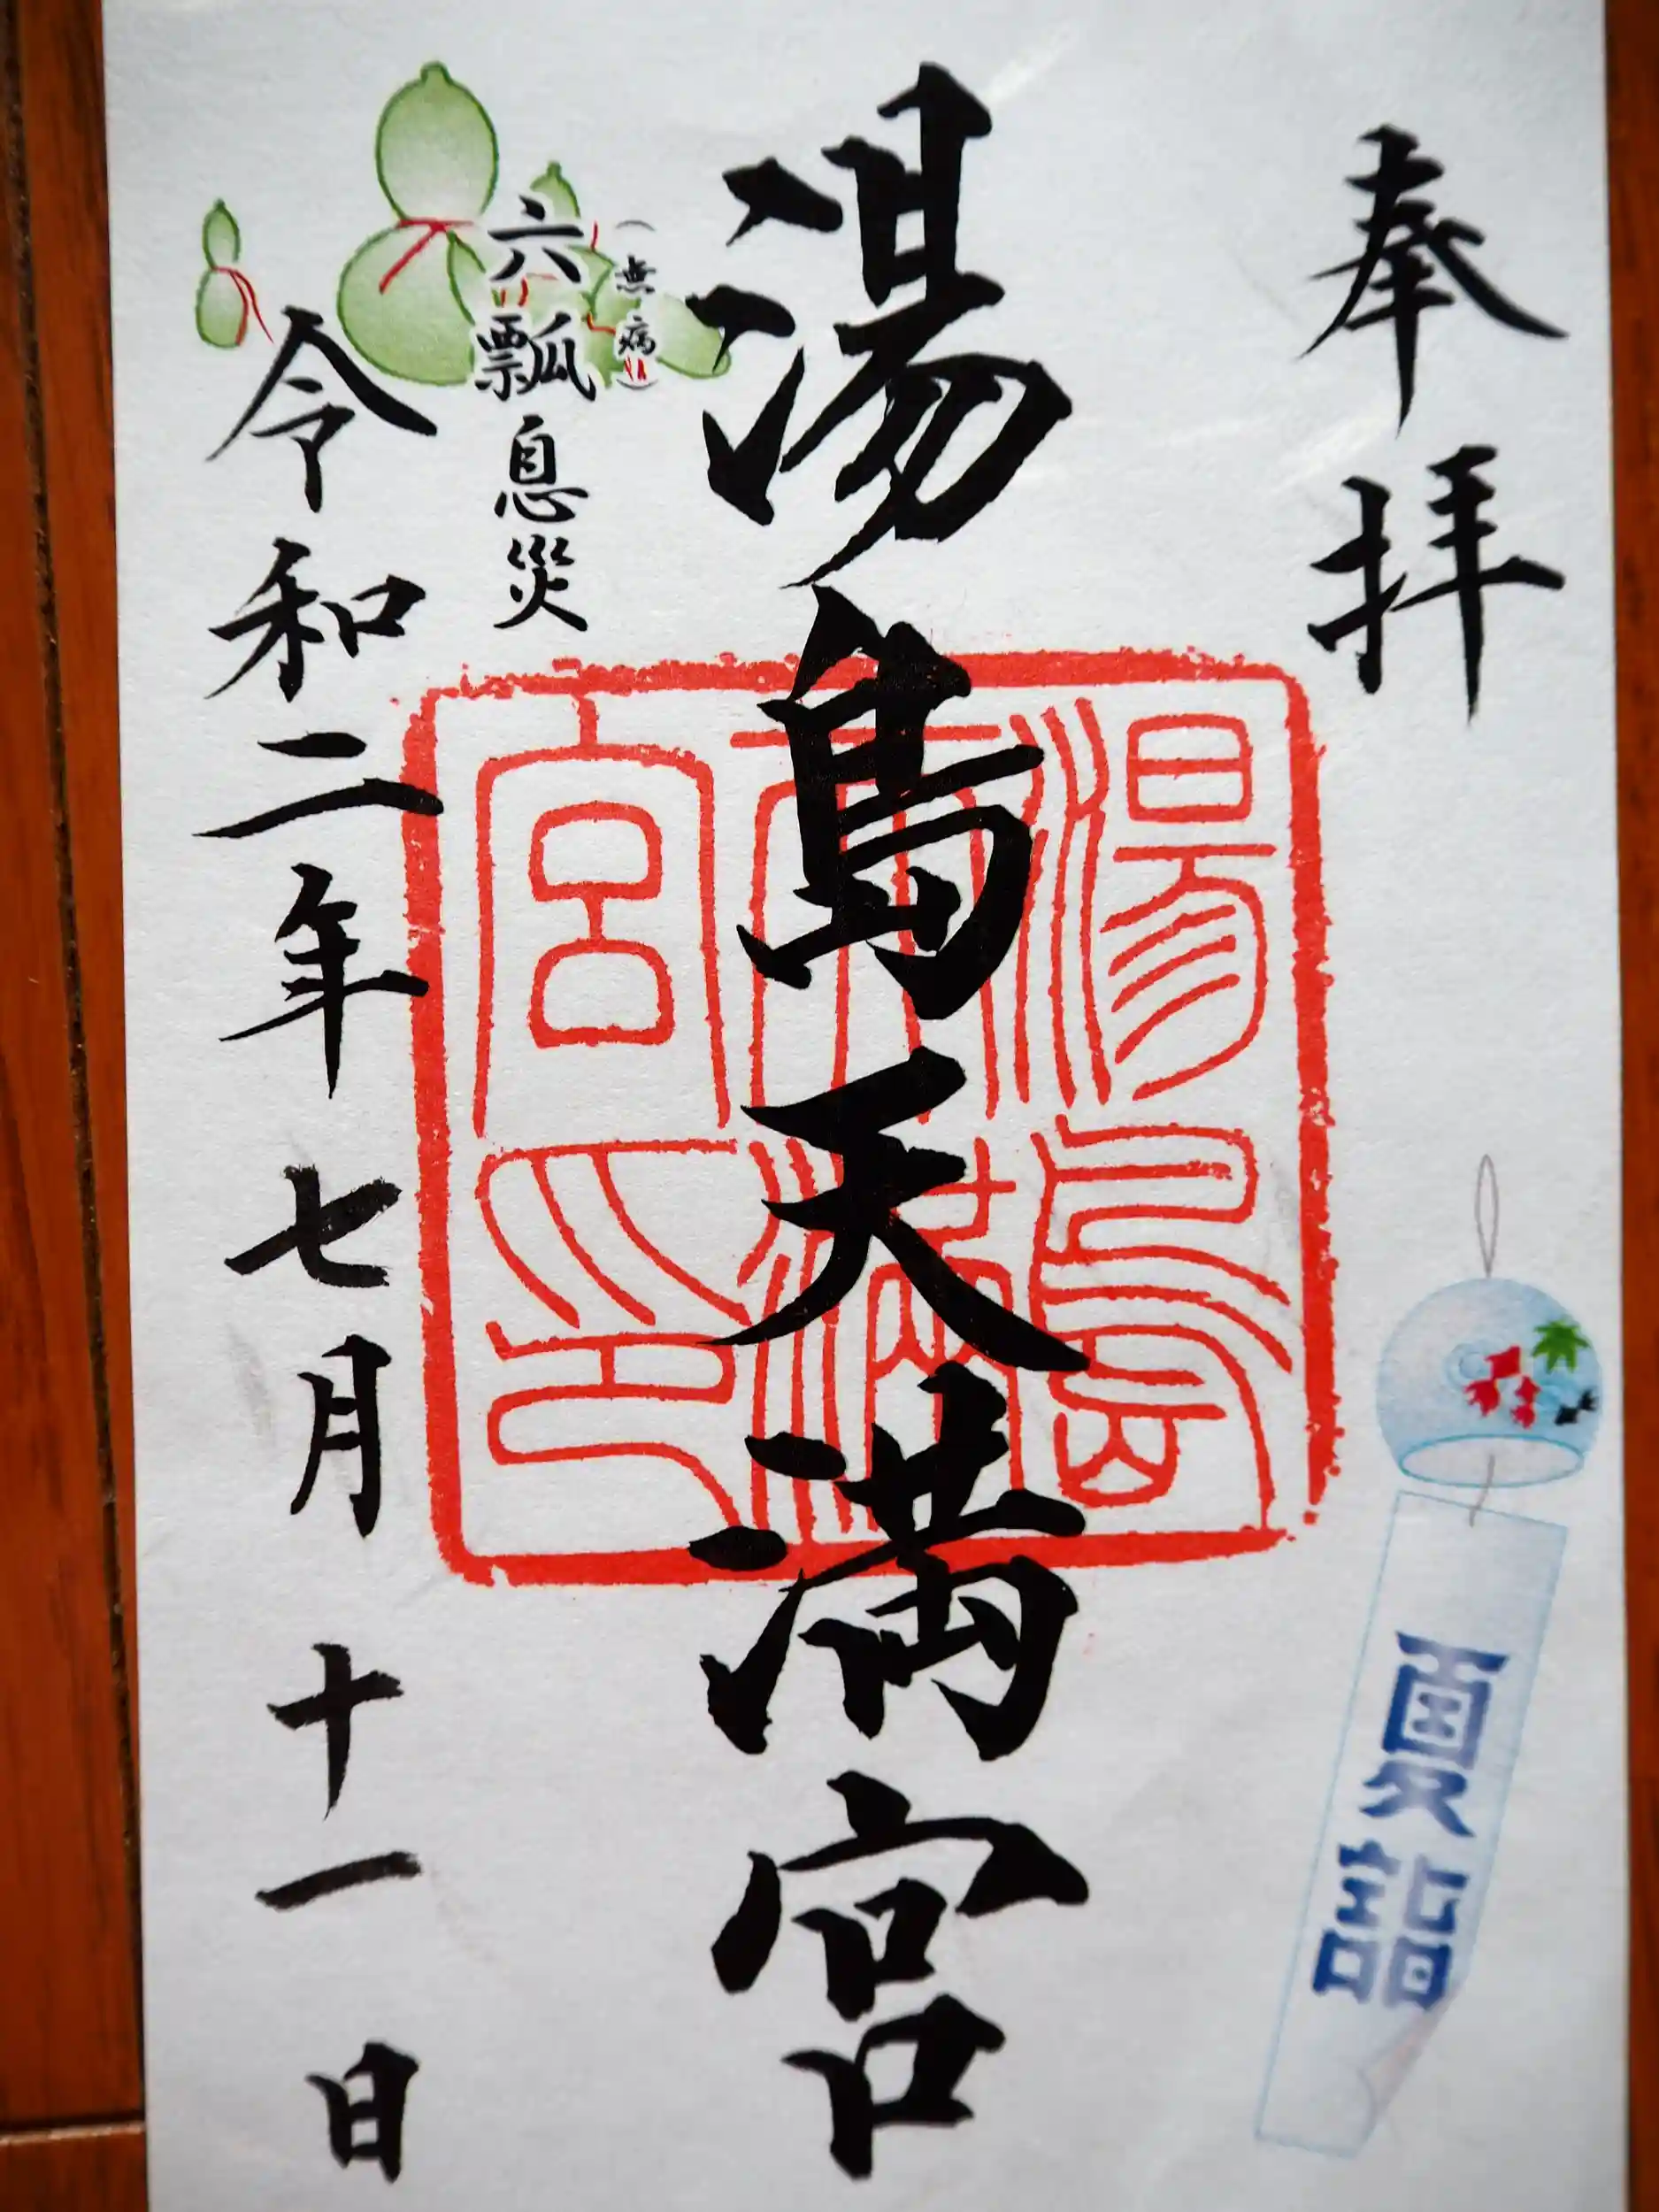 奉拝
夏詣
湯島天満宮
湯島
天満
宮印
（無病）
六瓢息災
令和二年七月十一日